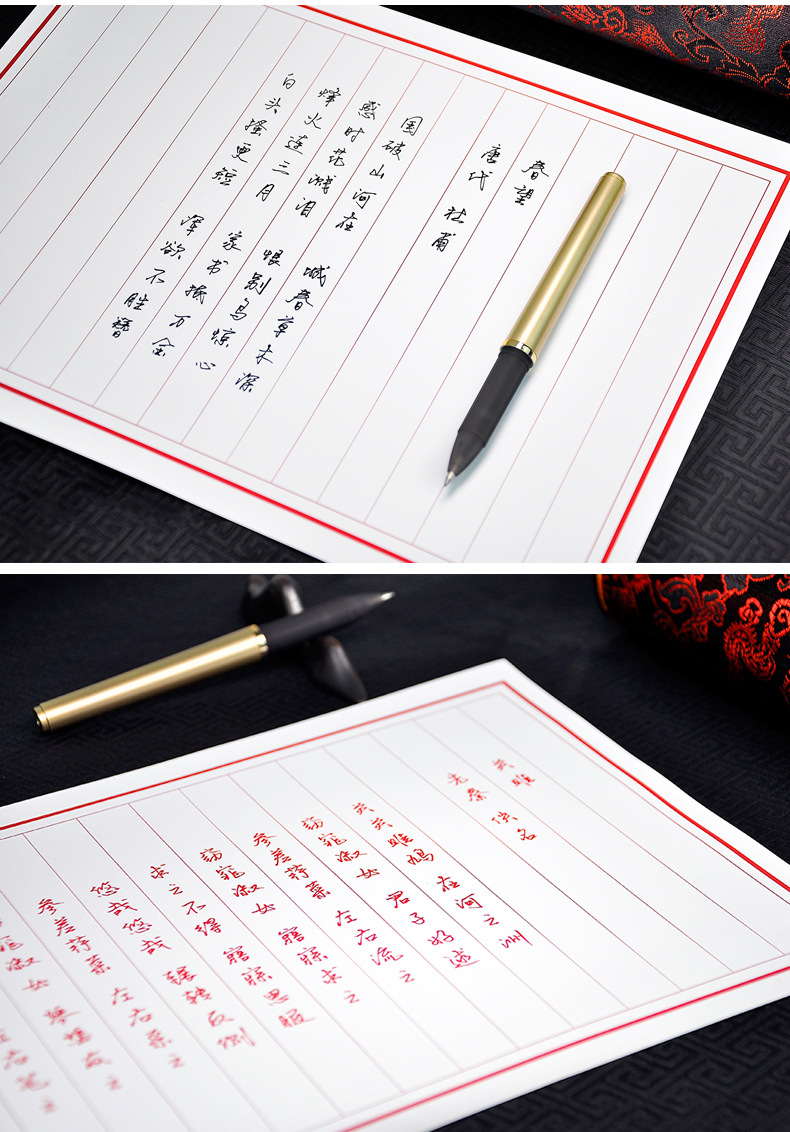 春望
唐代 杜甫
国破山河在 城春草木深
感时花溅泪 恨别鸟惊心
烽火连三月 家书抵万金
白头搔更短 浑欲不胜簪
关雎
先秦 佚名
关关雎鸠 在河之洲
窈窕淑女 君子好逑
参差荇菜 左右流之
窈窕淑女 寤寐求之
求之不得 寤寐思服
悠哉悠哉 辗转反侧
参差荇菜 左右采之
窕淑女 琴瑟友之
左右芼之